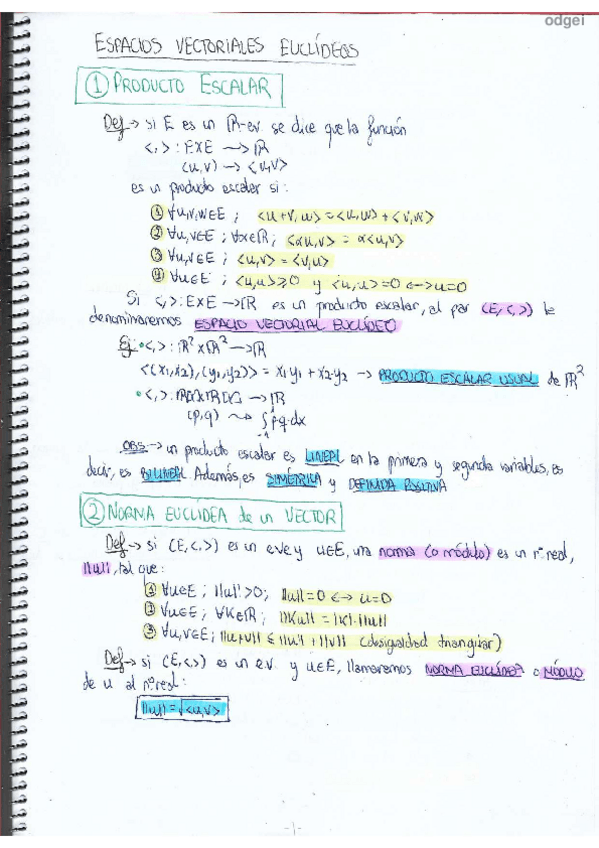 odgei
ESPACIOS VECTORIALES EUCLÍDEOS
① PRODUCTO ESCALAR
Def → si E es un R-ev se dice que la función
<,> : E×E → R
(u,v) → <u,v>
es un producto escalar si:
① ∀u,v,w∈E ; <u+v,w> = <u,w> + <v,w>
② ∀u,v∈E ; ∀α∈R ; <αu,v> = α<u,v>
③ ∀u,v∈E ; <u,v> = <v,u>
④ ∀u∈E ; <u,u> ≥ 0 y <u,u> = 0 ↔ u=0
Si <,> : E×E → R es un producto escalar, al par (E,<,>) le
denominaremos ESPACIO VECTORIAL EUCLÍDEO
Ej: • <,> : R² × R² → R
<(x₁,x₂),(y₁,y₂)> = x₁y₁ + x₂y₂ → PRODUCTO ESCALAR USUAL de R²
• <,> : → R
(p,q) ⇝ ∫₋₁¹ pq dx
OBS → un producto escalar es LINEAL en la primera y segunda variables, es
decir, es BILINEAL. Además, es SIMÉTRICA y DEFINIDA POSITIVA
② NORMA EUCLÍDEA de un VECTOR
Def → si (E,<,>) es un eve y u∈E, una norma (o módulo) es un nº real,
||u||, tal que:
① ∀u∈E ; ||u|| > 0 ; ||u|| = 0 ↔ u=0
② ∀u∈E ; ∀K∈R ; ||Ku|| = |K|·||u||
③ ∀u,v∈E ; ||u+v|| ≤ ||u|| + ||v|| (desigualdad triangular)
Def → si (E,<,>) es un e.v. y u∈E, llamaremos NORMA EUCLÍDEA o MÓDULO
de u al nº real:
||u|| = √<u,v>
-1-